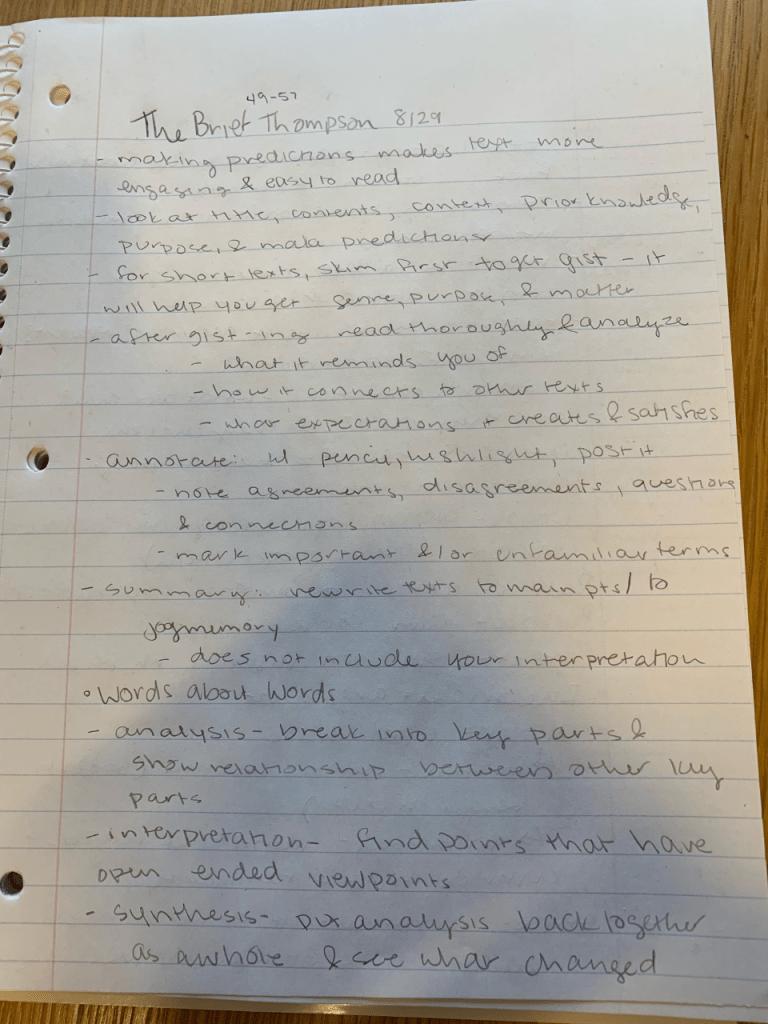 49-57
The Brief Thompson 8/29
- making predictions makes text more
engaging & easy to read
- look at title, contents, context, prior knowledge,
purpose, & make predictions
- for short texts, skim first to get gist - it
will help you get genre, purpose, & matter
- after gist-ing read thoroughly & analyze
- what it reminds you of
- how it connects to other texts
- what expectations it creates & satisfies
- annotate: w/ pencil, highlight, post it
- note agreements, disagreements, questions
& connections
- mark important &/or unfamiliar terms
- summary: rewrite texts to main pts/ to
jog memory
- does not include your interpretation
• Words about Words
- analysis - break into key parts &
show relationship between other key
parts
- interpretation - find points that have
open ended viewpoints
- synthesis - put analysis back together
as a whole & see what changed